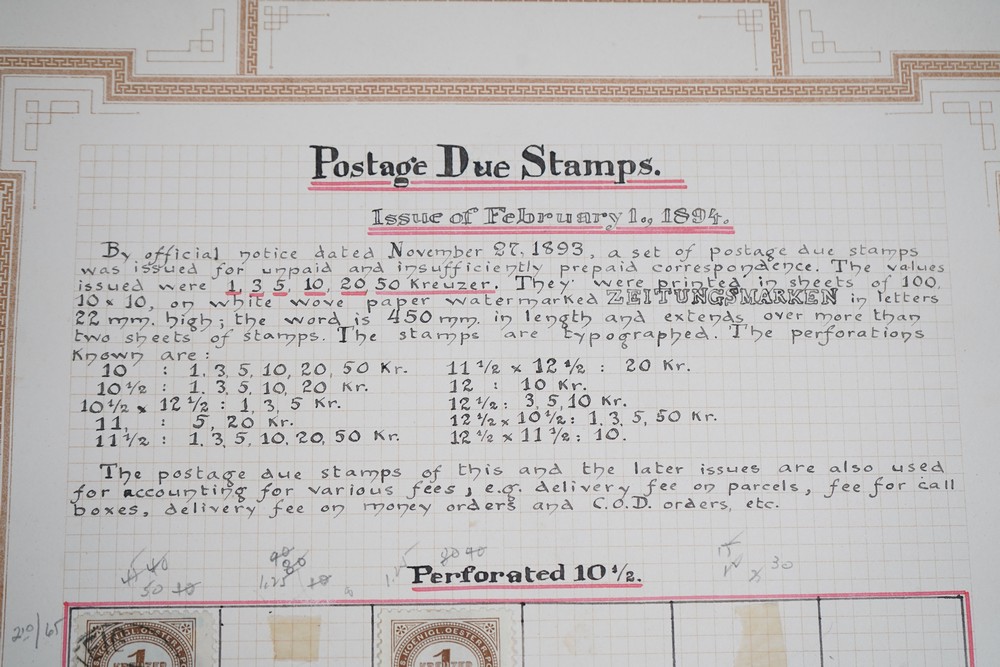 Postage Due Stamps.
Issue of February 1., 1894.
By official notice dated November 27, 1893, a set of postage due stamps
was issued for unpaid and insufficiently prepaid correspondence. The values
issued were 1, 3, 5, 10, 20, 50 Kreuzer. They were printed in sheets of 100,
10 x 10, on white wove paper watermarked ZEITUNGSMARKEN in letters
22 mm. high; the word is 450 mm. in length and extends over more than
two sheets of stamps. The stamps are typographed. The perforations
known are:
10 : 1, 3, 5, 10, 20, 50 Kr.
10 1/2 : 1, 3, 5, 10, 20 Kr.
10 1/2 x 12 1/2 : 1, 3, 5 Kr.
11, : 5, 20 Kr.
11 1/2 : 1, 3, 5, 10, 20, 50 Kr.
11 1/2 x 12 1/2 : 20 Kr.
12 : 10 Kr.
12 1/2 : 3, 5, 10 Kr.
12 1/2 x 10 1/2 : 1, 3, 5, 50 Kr.
12 1/2 x 11 1/2 : 10.
The postage due stamps of this and the later issues are also used
for accounting for various fees, e.g. delivery fee on parcels, fee for call
boxes, delivery fee on money orders and C.O.D. orders, etc.
30
50
1,25
Perforated 10 1/2.
1
KREUZER
1
KREUZER